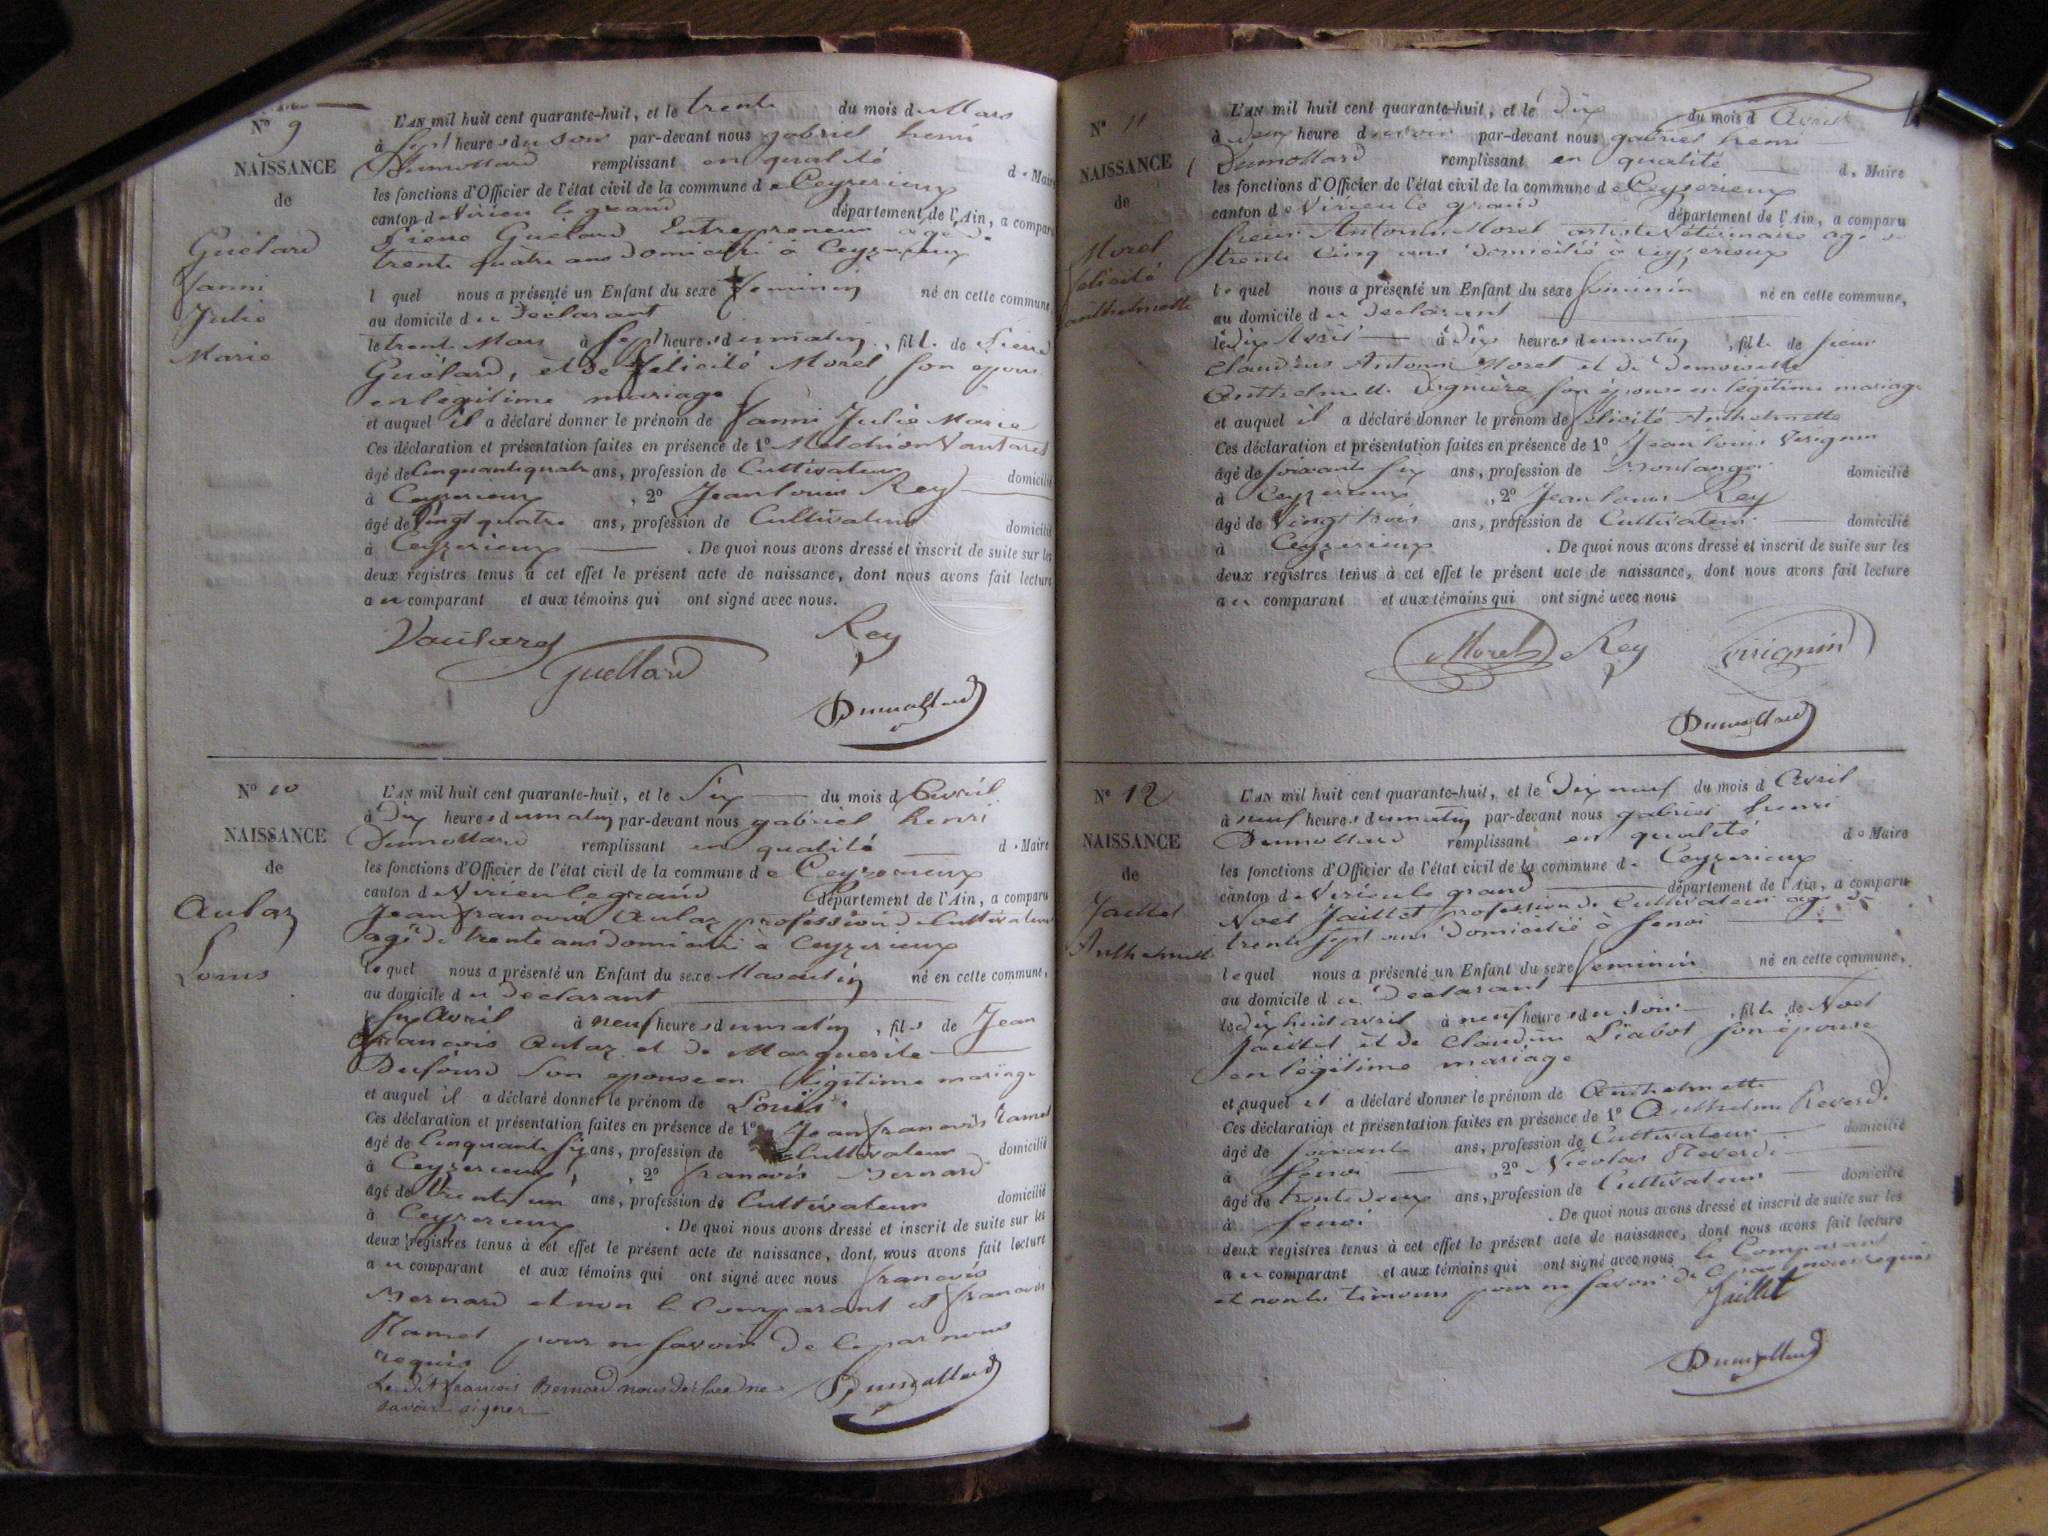 N° 9
NAISSANCE
de
Guélard
fanni
Julie
Marie
L'AN mil huit cent quarante-huit, et le trente du mois du Mars
à sept heures du soir par-devant nous gabriel henri
Dumollard remplissant en qualité de Maire
les fonctions d'Officier de l'état civil de la commune de Ceyzerieux
canton de Virieu le grand département de l'Ain, a comparu
Pierre Guélard Entrepreneur agé de
trente quatre ans domicilié à Ceyzerieux
lequel nous a présenté un Enfant du sexe feminin né en cette commune,
au domicile du Declarant
le trente Mars à sept heures du matin, fille de Pierre
Guélard, et de félicité Morel son épouse
en légitime mariage
et auquel il a déclaré donner le prénom de fanni Julie Marie
Ces déclaration et présentation faites en présence de 1° Vautaret
âgé de Cinquante quatre ans, profession de Cultivateur domicilié
à Ceyzerieux, 2° Jean louis Rey
âgé de Vingt quatre ans, profession de Cultivateur domicilié
à Ceyzerieux. De quoi nous avons dressé et inscrit de suite sur les
deux registres tenus à cet effet le présent acte de naissance, dont nous avons fait lecture
au comparant et aux témoins qui ont signé avec nous.
Rey
Guellard
Dumollard
N° 10
NAISSANCE
de
Aulaz
Louis
L'AN mil huit cent quarante-huit, et le Six du mois d'Avril
à Dix heures du matin par-devant nous gabriel henri
Dumollard remplissant en qualité de Maire
les fonctions d'Officier de l'état civil de la commune de Ceyzerieux
canton de Virieu le grand département de l'Ain, a comparu
Jean françois Aulaz profession de Cultivateur
agé de trente ans domicilié à Ceyzerieux
lequel nous a présenté un Enfant du sexe Masculin né en cette commune,
au domicile du Declarant
le Six Avril à neuf heures du matin, fils de Jean
françois Aulaz et de Marguerite
Dufourd son epouse en légitime mariage
et auquel il a déclaré donner le prénom de Louis
Ces déclaration et présentation faites en présence de 1° Jean françois Ramel
âgé de Cinquante six ans, profession de Cultivateur domicilié
à Ceyzerieux, 2° françois Bernard
âgé de trente un ans, profession de Cultivateur domicilié
à Ceyzerieux. De quoi nous avons dressé et inscrit de suite sur les
deux registres tenus à cet effet le présent acte de naissance, dont nous avons fait lecture
au comparant et aux témoins qui ont signé avec nous françois
Bernard et non le Comparant et françois
Ramel pour ne savoir de ce par nous
requis
Ledit françois Bernard nous déclare ne
savoir signer
Dumollard
N° 11
NAISSANCE
de
Morel
félicité
anthelmette
L'AN mil huit cent quarante-huit, et le Dix du mois d'Avril
à deux heure du soir par-devant nous gabriel henri
Dumollard remplissant en qualité de Maire
les fonctions d'Officier de l'état civil de la commune de Ceyzerieux
canton de Virieu le grand département de l'Ain, a comparu
sieur Antoine Morel artiste Vétérinaire agé de
trente Cinq ans domicilié à Ceyzerieux
lequel nous a présenté un Enfant du sexe feminin né en cette commune,
au domicile du Declarant
le dix Avril à dix heures du matin, fille de sieur
Claudius Antoine Morel et de Demoiselle
Anthelmette son épouse en légitime mariage
et auquel il a déclaré donner le prénom de félicité Anthelmette
Ces déclaration et présentation faites en présence de 1° Jean louis Virignin
âgé de soixante six ans, profession de Boulanger domicilié
à Ceyzerieux, 2° Jean louis Rey
âgé de Vingt trois ans, profession de Cultivateur domicilié
à Ceyzerieux. De quoi nous avons dressé et inscrit de suite sur les
deux registres tenus à cet effet le présent acte de naissance, dont nous avons fait lecture
au comparant et aux témoins qui ont signé avec nous
Morel Rey Virignin
Dumollard
N° 12
NAISSANCE
de
Jaillet
Anthelmette
L'AN mil huit cent quarante-huit, et le Dix neuf du mois d'Avril
à neuf heures du matin par-devant nous gabriel henri
Dumollard remplissant en qualité de Maire
les fonctions d'Officier de l'état civil de la commune de Ceyzerieux
canton de Virieu le grand département de l'Ain, a comparu
Noel Jaillet profession de Cultivateur agé de
trente sept ans domicilié à Senoi
lequel nous a présenté un Enfant du sexe feminin né en cette commune,
au domicile du Declarant
le dix huit avril à neuf heures du soir, fille de Noel
Jaillet et de Claudine Liabot son épouse
en légitime mariage
et auquel il a déclaré donner le prénom de Anthelmette
Ces déclaration et présentation faites en présence de 1° Anthelme Reverdi
âgé de soixante ans, profession de Cultivateur domicilié
à Senoi, 2° Nicolas Reverdi
âgé de trente deux ans, profession de Cultivateur domicilié
à Senoi. De quoi nous avons dressé et inscrit de suite sur les
deux registres tenus à cet effet le présent acte de naissance, dont nous avons fait lecture
au comparant et aux témoins qui ont signé avec nous le Comparant
et non les témoins pour ne savoir de ce par nous requis
Jaillet
Dumollard